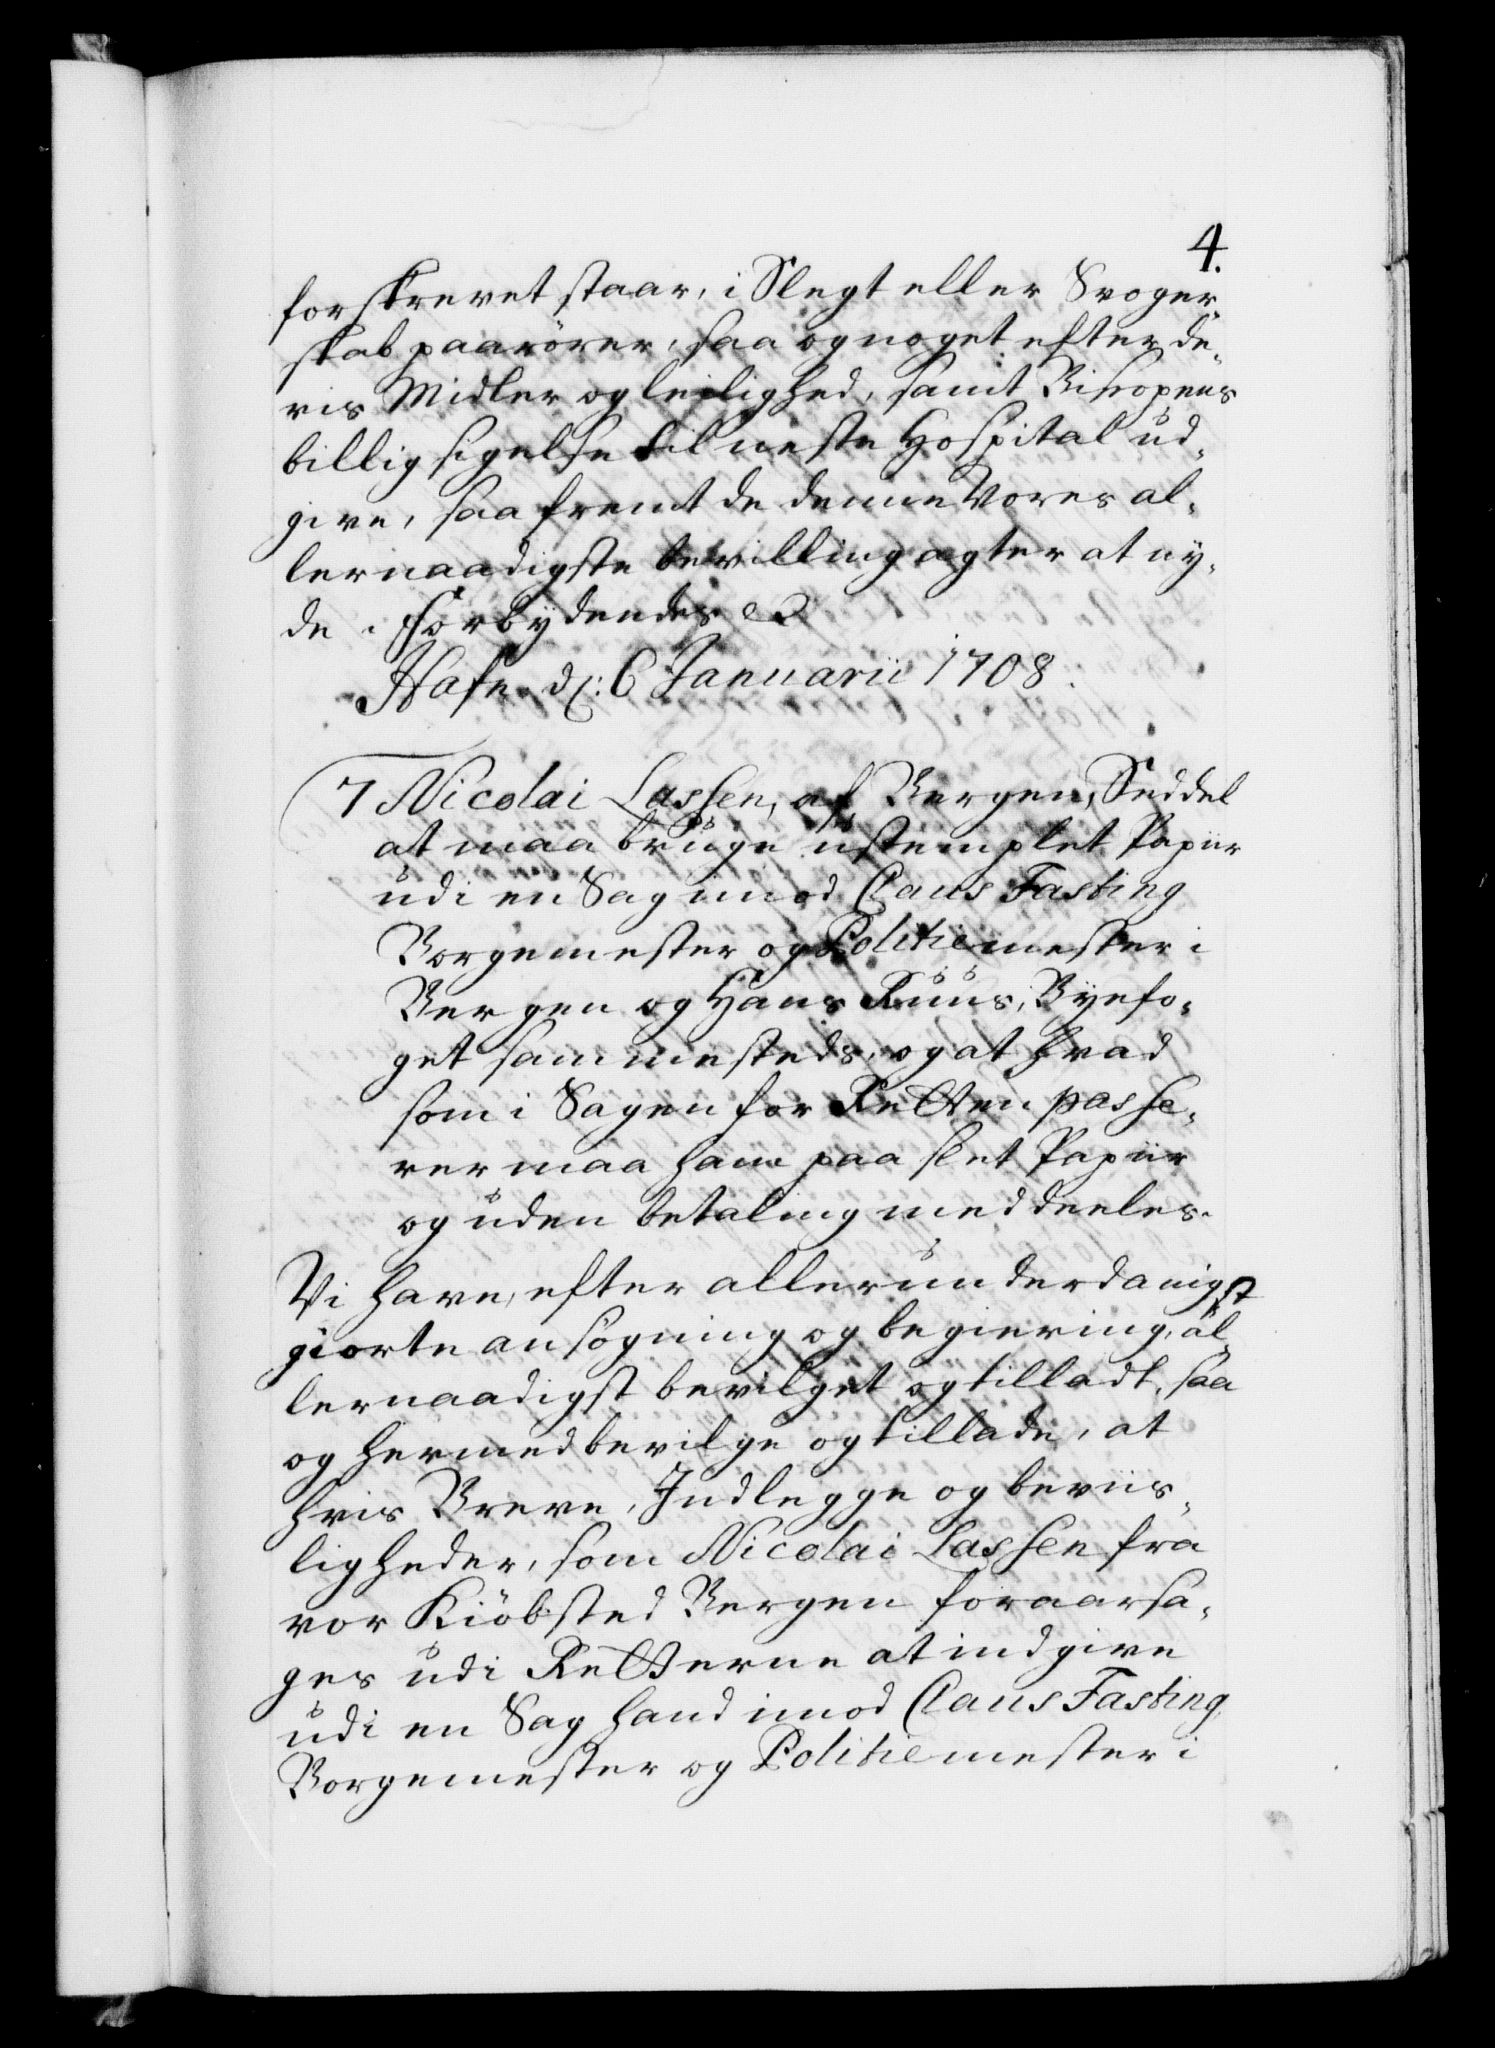 4.
forskrevet staar, i Slegt eller Svoger,
skab paarörer, saa og noget efter de,
ris Midler og leilighed, samt Biscopens
billig sigelse til neste Hospital ud,
give, saa fremt de denne Vores al,
lernaadigste bevilling agter at ny,
de. Forbydendes &
Hafn. d: 6 Januarii 1708.
7 Nicolai Lassen, af Bergen, Seddel
at maa bruge ustemplet Papiir
udi en Sag imod Claus Fasting
Borgemester og Politiemester i
Bergen og Hans Ruus, Byefo,
get sammesteds, og at hvad
som i Sagen for Retten passe,
rer maa ham paa slet Papiir
og uden betaling meddeeles.
Vi have, efter allerunderdanigst
giorte ansögning og begiering, al,
lernaadigst bevilget og tilladt, saa
og hermed bevilge og tillade, at
hvis Breve, Indlegge og beviis,
ligheder, som Nicolai Lassen fra
vor Kiöbsted Bergen foraarsa,
ges udi Retterne at indgive
udi en Sag hand imod Claus Fasting
Borgemester og Politiemester i